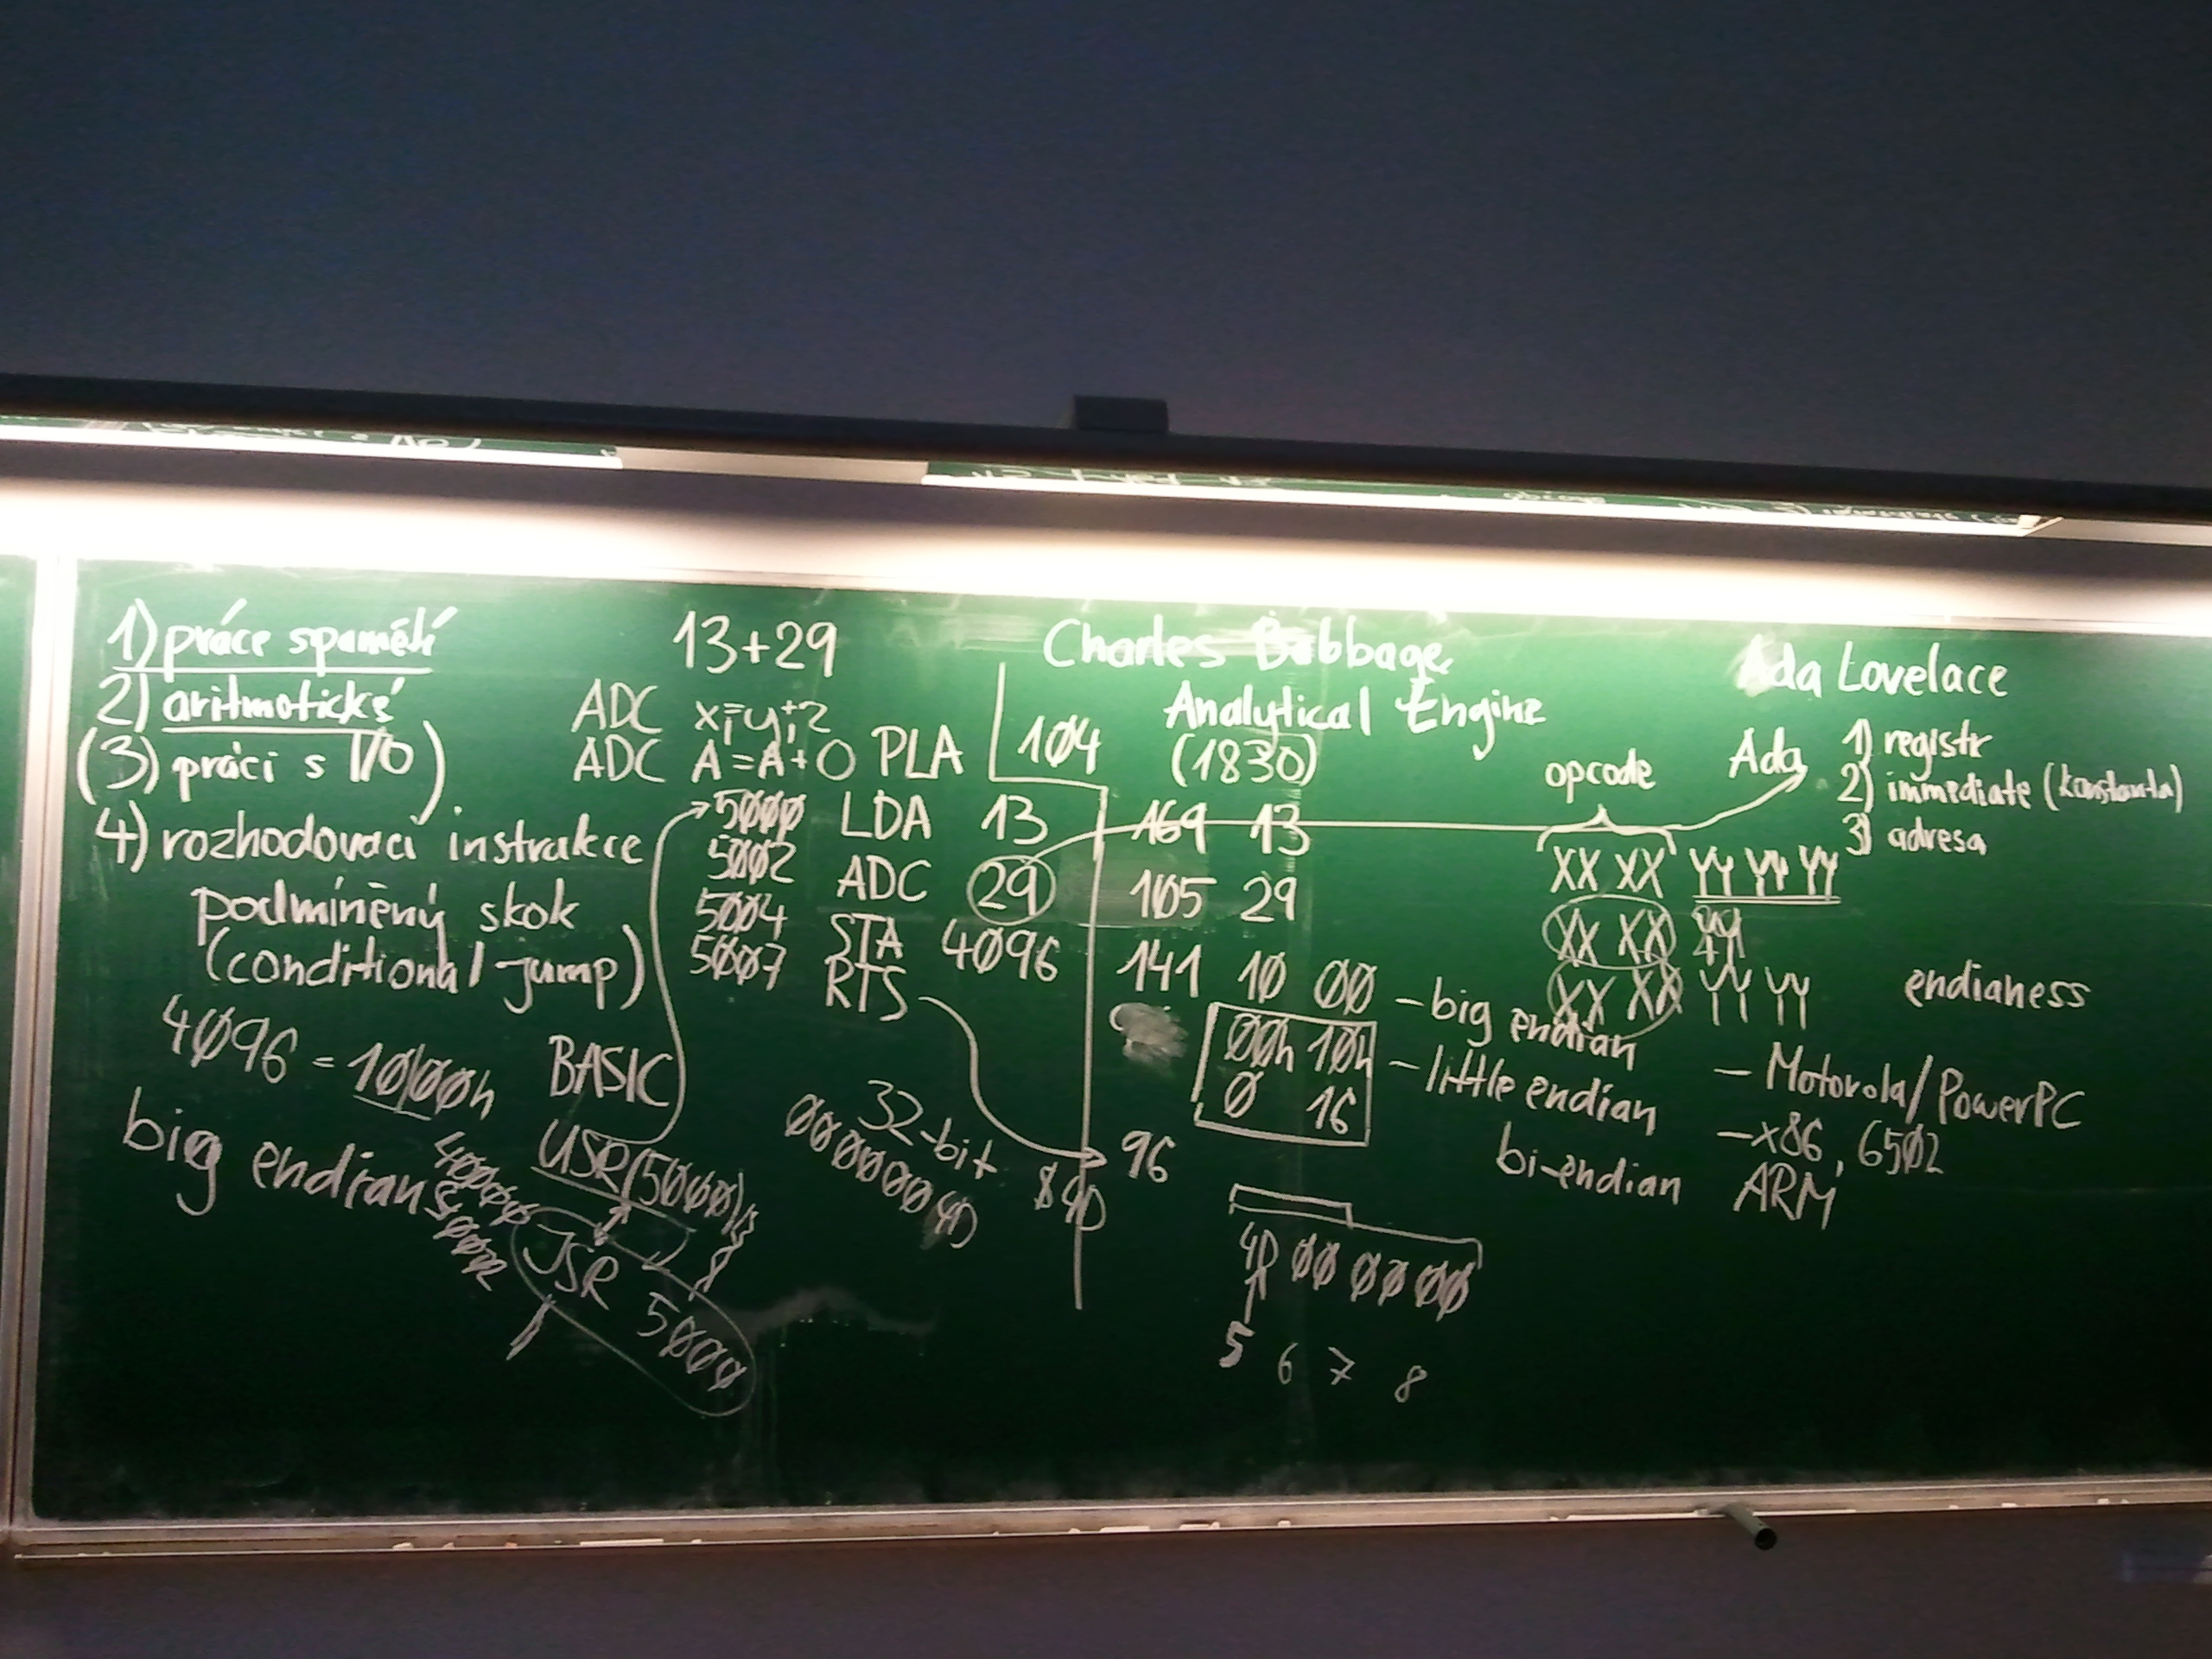 1) práce s pamětí
2) aritmetické
(3) práci s I/O)
4) rozhodovací instrukce
podmíněný skok
(conditional jump)
4096 = 1000h
big endian
BASIC
USR(5000)
JSR 5000
13+29
ADC x=y+z
ADC A=A+0 PLA 104
5000 LDA 13 169 13
5002 ADC 29 105 29
5004 STA 4096 141 10 00 - big endian
5007 RTS
00h 10h - little endian
0 16
96
32-bit
00000040
$40
40 00 00 00
5 6 7 8
Charles Babbage
Analytical Engine
(1830)
Ada Lovelace
Ada
opcode
1) registr
2) immediate (konstanta)
3) adresa
XX XX YY YY YY
XX XX YY
XX XX YY YY
endianess
- Motorola/PowerPC
- x86, 6502
bi-endian ARM